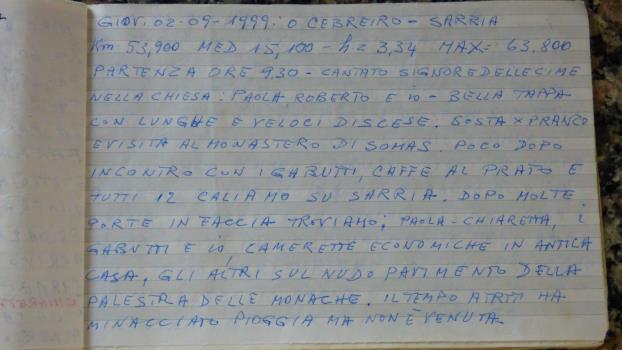 GIOV. 02-09-1999. O CEBREIRO - SARRIA
Km 53,900 MED 15,100 - h = 3,34 MAX = 63.800
PARTENZA ORE 930 - CANTATO SIGNORE DELLE CIME
NELLA CHIESA. PAOLA, ROBERTO E IO - BELLA TAPPA
CON LUNGHE E VELOCI DISCESE. SOSTA X PRANZO
E VISITA AL MONASTERO DI SOMAS. POCO DOPO
INCONTRO CON I GABUTTI, CAFFE AL PRATO E
TUTTI 12 CALIAMO SU SARRIA. DOPO MOLTE
PORTE IN FACCIA TROVIAMO; PAOLA - CHIARETTA, i
GABUTTI E IO, CAMERETTE ECONOMICHE IN ANTICA
CASA, GLI ALTRI SUL NUDO PAVIMENTO DELLA
PALESTRA DELLE MONACHE. IL TEMPO A TRATTI HA
MINACCIATO PIOGGIA MA NON È VENUTA.